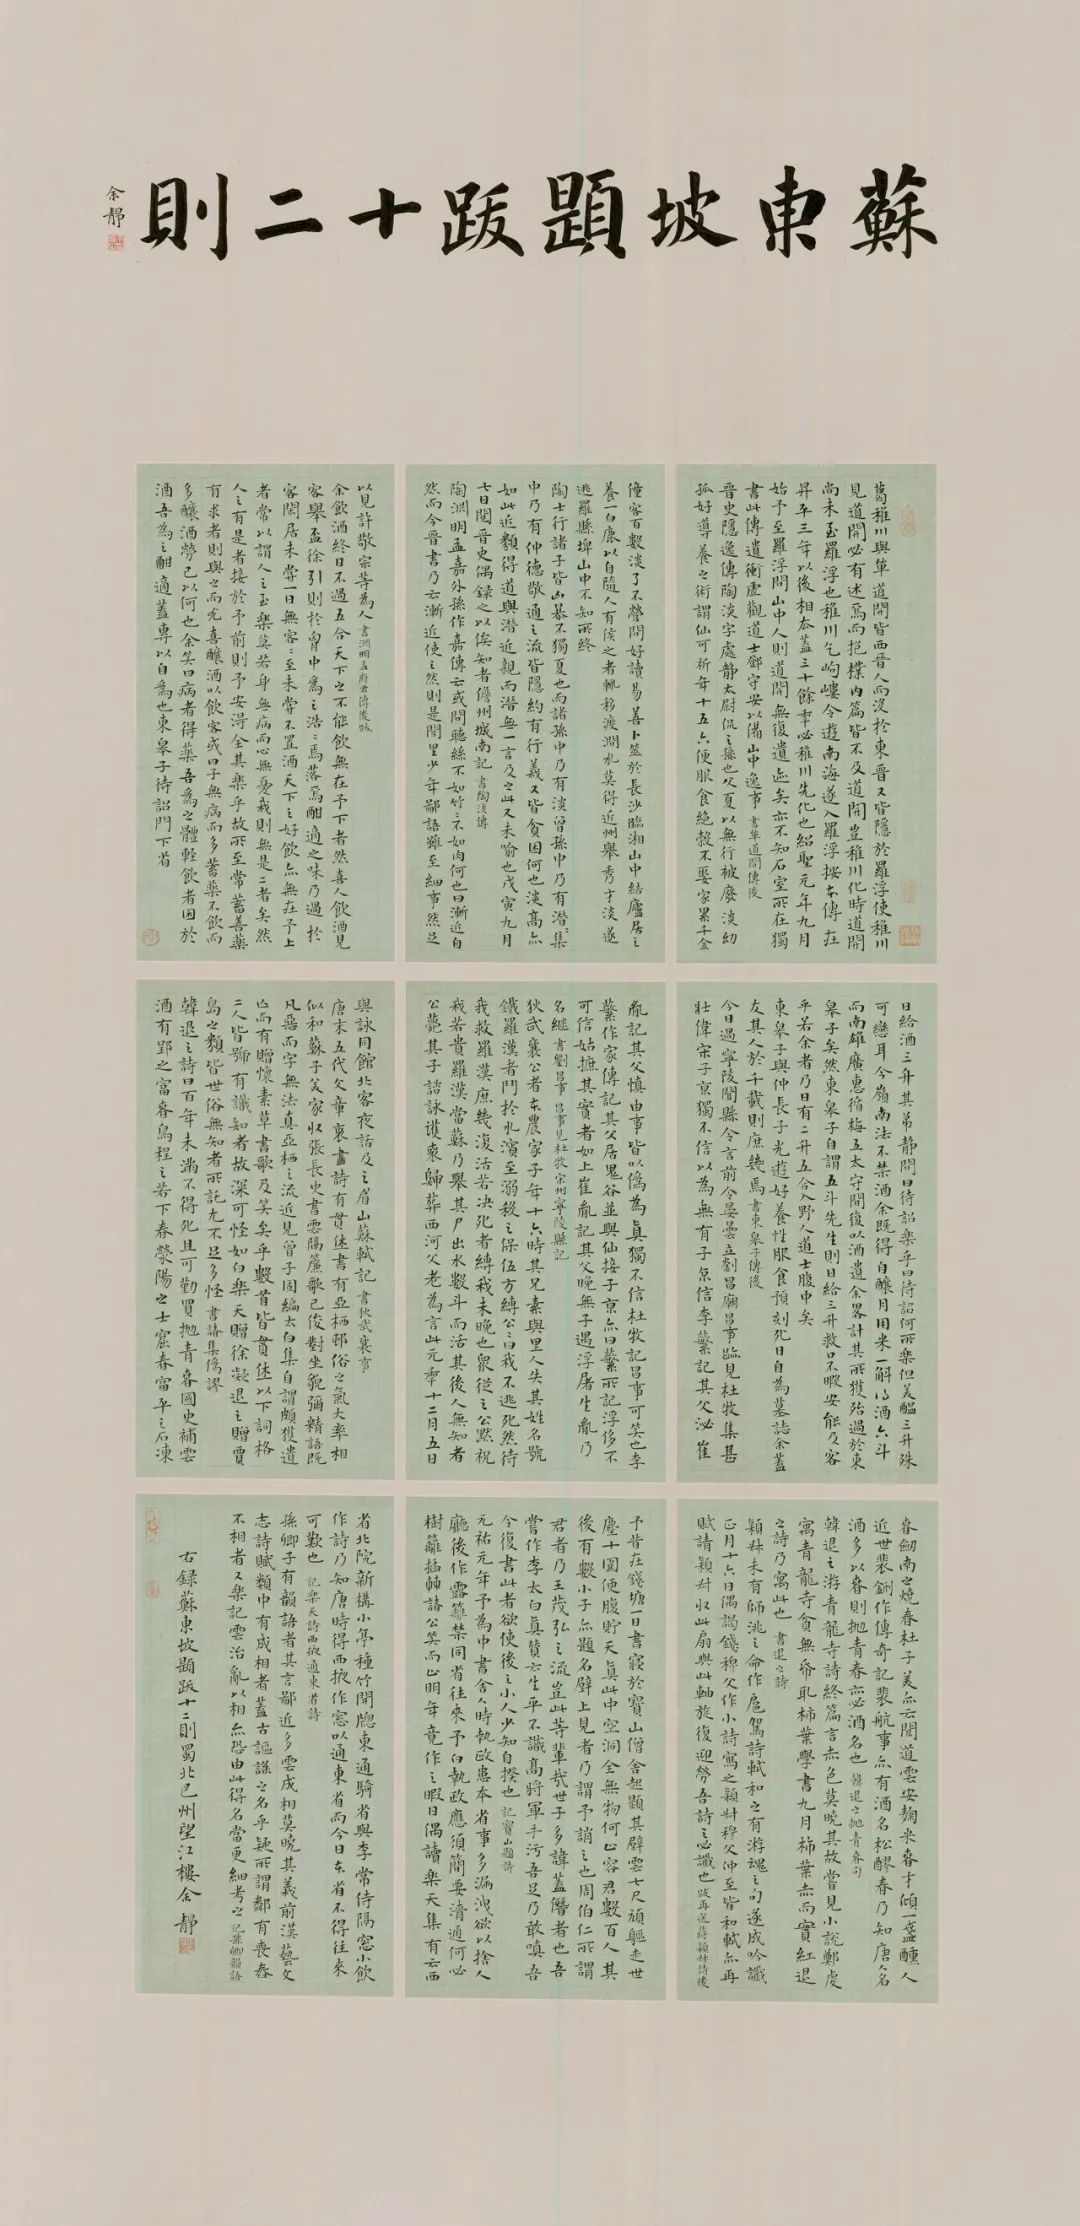 蘇東坡題跋十二則
余靜
葛稚川與單道開皆西晉人而沒於東晉又皆隱於羅浮使稚川
見道開必有述焉而抱樸內篇皆不及道開豈稚川化時道開
尚未至羅浮也稚川乞岣嶁令遊南海遂入羅浮按本傳在
昇平三年以後相去蓋三十餘年必稚川先化也紹聖元年九月
始予至羅浮問山中人則道開無復遺迹矣亦不知石室所在獨
書此傳遺衝虛觀道士鄧守安以備山中逸事 書單道開傳後
晉史隱逸傳陶淡字處靜太尉侃之孫也父夏以無行被廢淡幼
孤好導養之術謂仙可祈年十五六便服食絕穀不娶家累千金
僮客百數淡了不營問好讀易善卜筮於長沙臨湘山中結廬居之
養一白鹿以自隨人有侯之者輒移渡澗水莫得近州舉秀才淡遂
逃羅縣埤山中不知所終
陶士行諸子皆凶暴不獨夏也而諸孫中乃有淡曾孫中乃有潛集
中乃有仲德敬通之流皆隱約有行義又皆貧困何也淡高亦
如此近類得道與潛近親而潛無一言及之此又未喻也戊寅九月
七日閱晉史偶錄之以俟知者儋州城南記 書陶淡傳
陶淵明孟嘉外孫作嘉傳云或問聽絲不如竹竹不如肉何也曰漸近自
然而今晉書乃云漸近使之然則是閭里少年鄙語雖至細事然足
以見許敬宗等為人 書淵明孟府君傳後
余飲酒終日不過五合天下之不能飲無在予下者然喜人飲酒見
客舉盃徐引則於胷中為之浩浩焉落焉酣適之味乃過於
客閑居未嘗一日無客客至未嘗不置酒天下之好飲亦無在予上
者常以謂人之至樂莫若身無病而心無憂我則無是二者矣然
人之有是者接於予前則予安得全其樂乎故所至常蓄善藥
有求者則與之而尤喜釀酒以飲客或曰子無病而多蓄藥不飲而
多釀酒勞己以何也余笑曰病者得藥吾為之體輕飲者困於
酒吾為之酣適蓋專以自為也東皋子待詔門下省
日給酒三升其弟靜問曰待詔樂乎曰待詔何所樂但美醞三升殊
可戀耳今嶺南法不禁酒余既得自釀月用米一斛得酒六斗
而南雄廣惠循梅五太守間復以酒遺余畧計其所獲殆過於東
皋子矣然東皋子自謂五斗先生則日給三升救口不暇安能及客
乎若余者乃日有二升五合入野人道士腹中矣
東皋子與仲長子光遊好養性服食預刻死日自為墓誌余蓋
友其人於千載則庶幾焉 書東皋子傳後
今日過寧陵閭縣令言前令晏曇立劉昌廟昌事臨見杜牧集甚
壯偉宋子京獨不信以為無有子京信李蘩記其父泌崔
胤記其父慎由事皆以偽為真獨不信杜牧記昌事可笑也李
蘩作家傳記其父居鬼谷並與仙接子京亦曰蘩所記浮侈不
可信姑摭其實者如上崔胤記其父晚無子遇浮屠生胤乃
名緇 書劉昌事 昌事見杜牧宋州寧陵縣記
狄武襄公者本農家子年十六時其兄素與里人失其姓名號
鐵羅漢者鬥於水濱至溺殺之保伍方縛公公曰我不逃死然待
我救羅漢庶幾復活若決死者縛我未晚也眾從之公默祝
我若貴羅漢當蘇乃舉其尸出水數斗而活其後人無知者
公薨其子諮詠護喪歸葬西河父老為言此元年十二月五日
與詠同館北客夜話及之眉山蘇軾記 書狄武襄事
唐末五代文章衰盡詩有貫休書有亞栖村俗之氣大率相
似和蘇子美家収張長史書雲隔簾歌已俊對坐貌彌精語既
凡惡而字無法真亞栖之流近見曾子固編太白集自謂頗獲遺
亡而有贈懷素草書歌及笑矣乎數首皆貫休以下詞格
二人皆號有識知者故深可怪如白樂天贈徐凝退之贈賈
島之類皆世俗無知者所託尤不足多怪 書諸集偽謬
韓退之詩曰百年未滿不得死且可勤買拋青春國史補雲
酒有郢之富春烏程之若下春滎陽之土窟春富平之石凍
春劒南之燒春杜子美亦云聞道雲安麴米春才傾一盞醺人
近世裴鉶作傳奇記裴航事亦有酒名松醪春乃知唐人名
酒多以春則拋青春亦必酒名也 韓退之拋青春句
韓退之游青龍寺詩終篇言赤色莫曉其故嘗見小說鄭虔
寓青龍寺貧無紙取柿葉學書九月柿葉赤而實紅退
之詩乃寓此也 書退之詩
穎叔未有師洮之命作扈駕詩軾和之有游魂之句遂成吟讖
正月十六日偶謁錢穆父作小詩寫之穎叔穆父仲至皆和軾亦再
賦請穎叔収此扇與此軸旋復迎勞吾詩之必讖也 跋再送蔣穎叔詩後
予昔在錢塘一日晝寢於寶山僧舍起題其壁雲七尺頑軀走世
塵十圍便腹貯天真此中空洞全無物何止容君數百人其
後有數小子亦題名壁上見者乃謂予誚之也周伯仁所謂
君者乃王茂弘之流豈此等輩哉世子多諱蓋僭者也吾
嘗作李太白真贊云生平不識高將軍手汙吾足乃敢嗔吾
今復書此者欲使後之小人少知自揆也 記寶山題詩
元祐元年予為中書舍人時執政患本省事多漏洩欲以捨人
廳後作露籬禁同省往來予白執政應須簡要清通何必
樹籬插棘諸公笑而止明年竟作之暇日偶讀樂天集有云西
省北院新搆小亭種竹開牎東通騎省與李常侍隔窓小飲
作詩乃知唐時得西掖作窓以通東省而今日本省不得往來
可歎也 記樂天詩西掖通東省詩
孫卿子有韻語者其言鄙近多雲成相莫曉其義前漢藝文
志詩賦類中有成相者蓋古謳謠之名乎疑所謂鄰有喪舂
不相者又樂記雲治亂以相亦恐由此得名當更細考之 記孫卿韻語
右錄蘇東坡題跋十二則蜀北巴州望江樓余靜